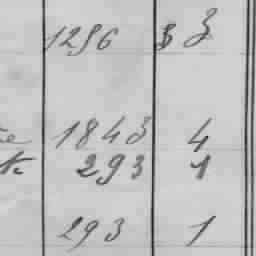 1296 3
1843 4
293 1
293 1